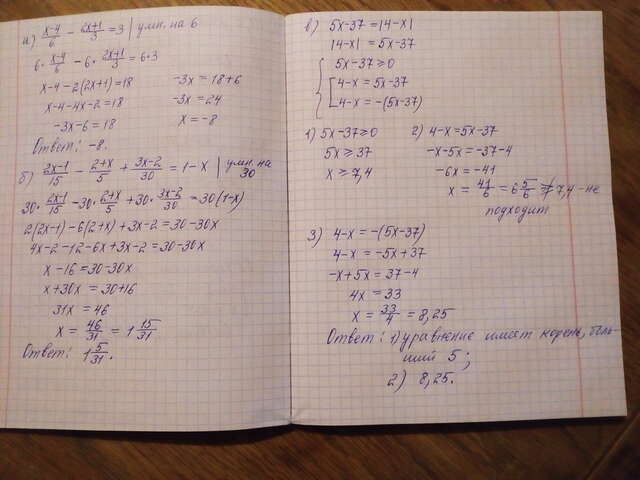 а) x-4/6 - 2x+1/3 = 3 | умн. на 6
6 · x-4/6 - 6 · 2x+1/3 = 6·3
x-4-2(2x+1)=18
x-4-4x-2=18
-3x-6=18
-3x = 18+6
-3x = 24
x = -8
Ответ: -8.
б) 2x-1/15 - 2+x/5 + 3x-2/30 = 1-x | умн. на 30
30· 2x-1/15 -30· 2+x/5 +30· 3x-2/30 =30(1-x)
2(2x-1)-6(2+x)+3x-2=30-30x
4x-2-12-6x+3x-2=30-30x
x-16=30-30x
x+30x = 30+16
31x = 46
x = 46/31 = 1 15/31
Ответ: 1 5/31.
в) 5x-37=|4-x|
|4-x|=5x-37
5x-37≥0
4-x=5x-37
4-x=-(5x-37)
1) 5x-37≥0
5x≥37
x≥7,4
2) 4-x=5x-37
-x-5x=-37-4
-6x=-41
x = 41/6 = 6 5/6 ≱ 7,4 - не
подходит
3) 4-x=-(5x-37)
4-x=-5x+37
-x+5x=37-4
4x=33
x = 33/4 = 8,25
Ответ: 1) уравнение имеет корень, боль-
ший 5;
2) 8,25.